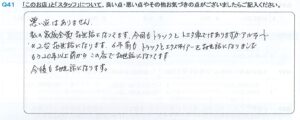 Q41 「このお店」と「スタッフ」について、良い点・悪い点やその他お気づきの点がございましたらご記入ください。
悪い点はありません。
私も家族全員お世話になってます。今回もトラックと
×2台お世話になり、6年前もトラックとエクストレイルをお世話になりました
もう20年以上前からこの店でお世話になってます
今後もお世話になります。